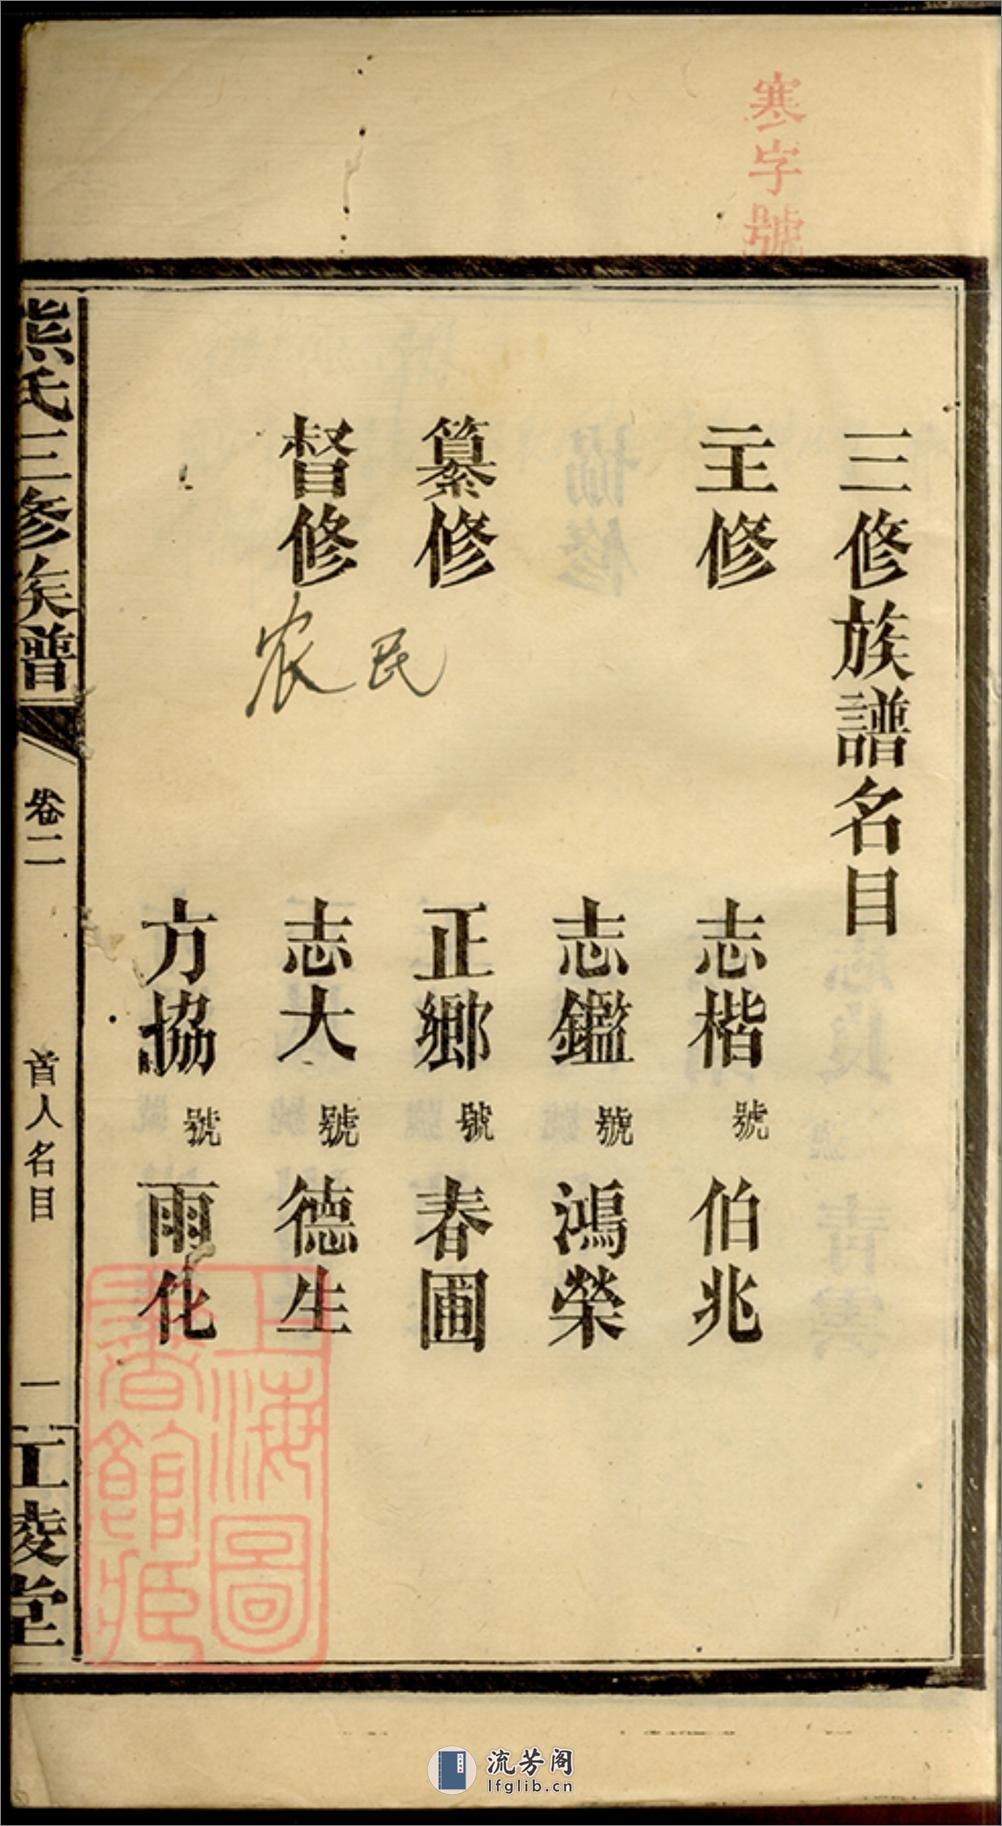 寒字號
三修族譜名目
主修 志楷 號 伯兆
志鑑 號 鴻榮
纂修 正鄉 號 春圃
督修 志大 號 德生
方協 號 雨化
农民
熊氏三修族譜 卷二 首人名目 一 江陵堂
上海圖書館藏
流芳阁
lfglib.cn